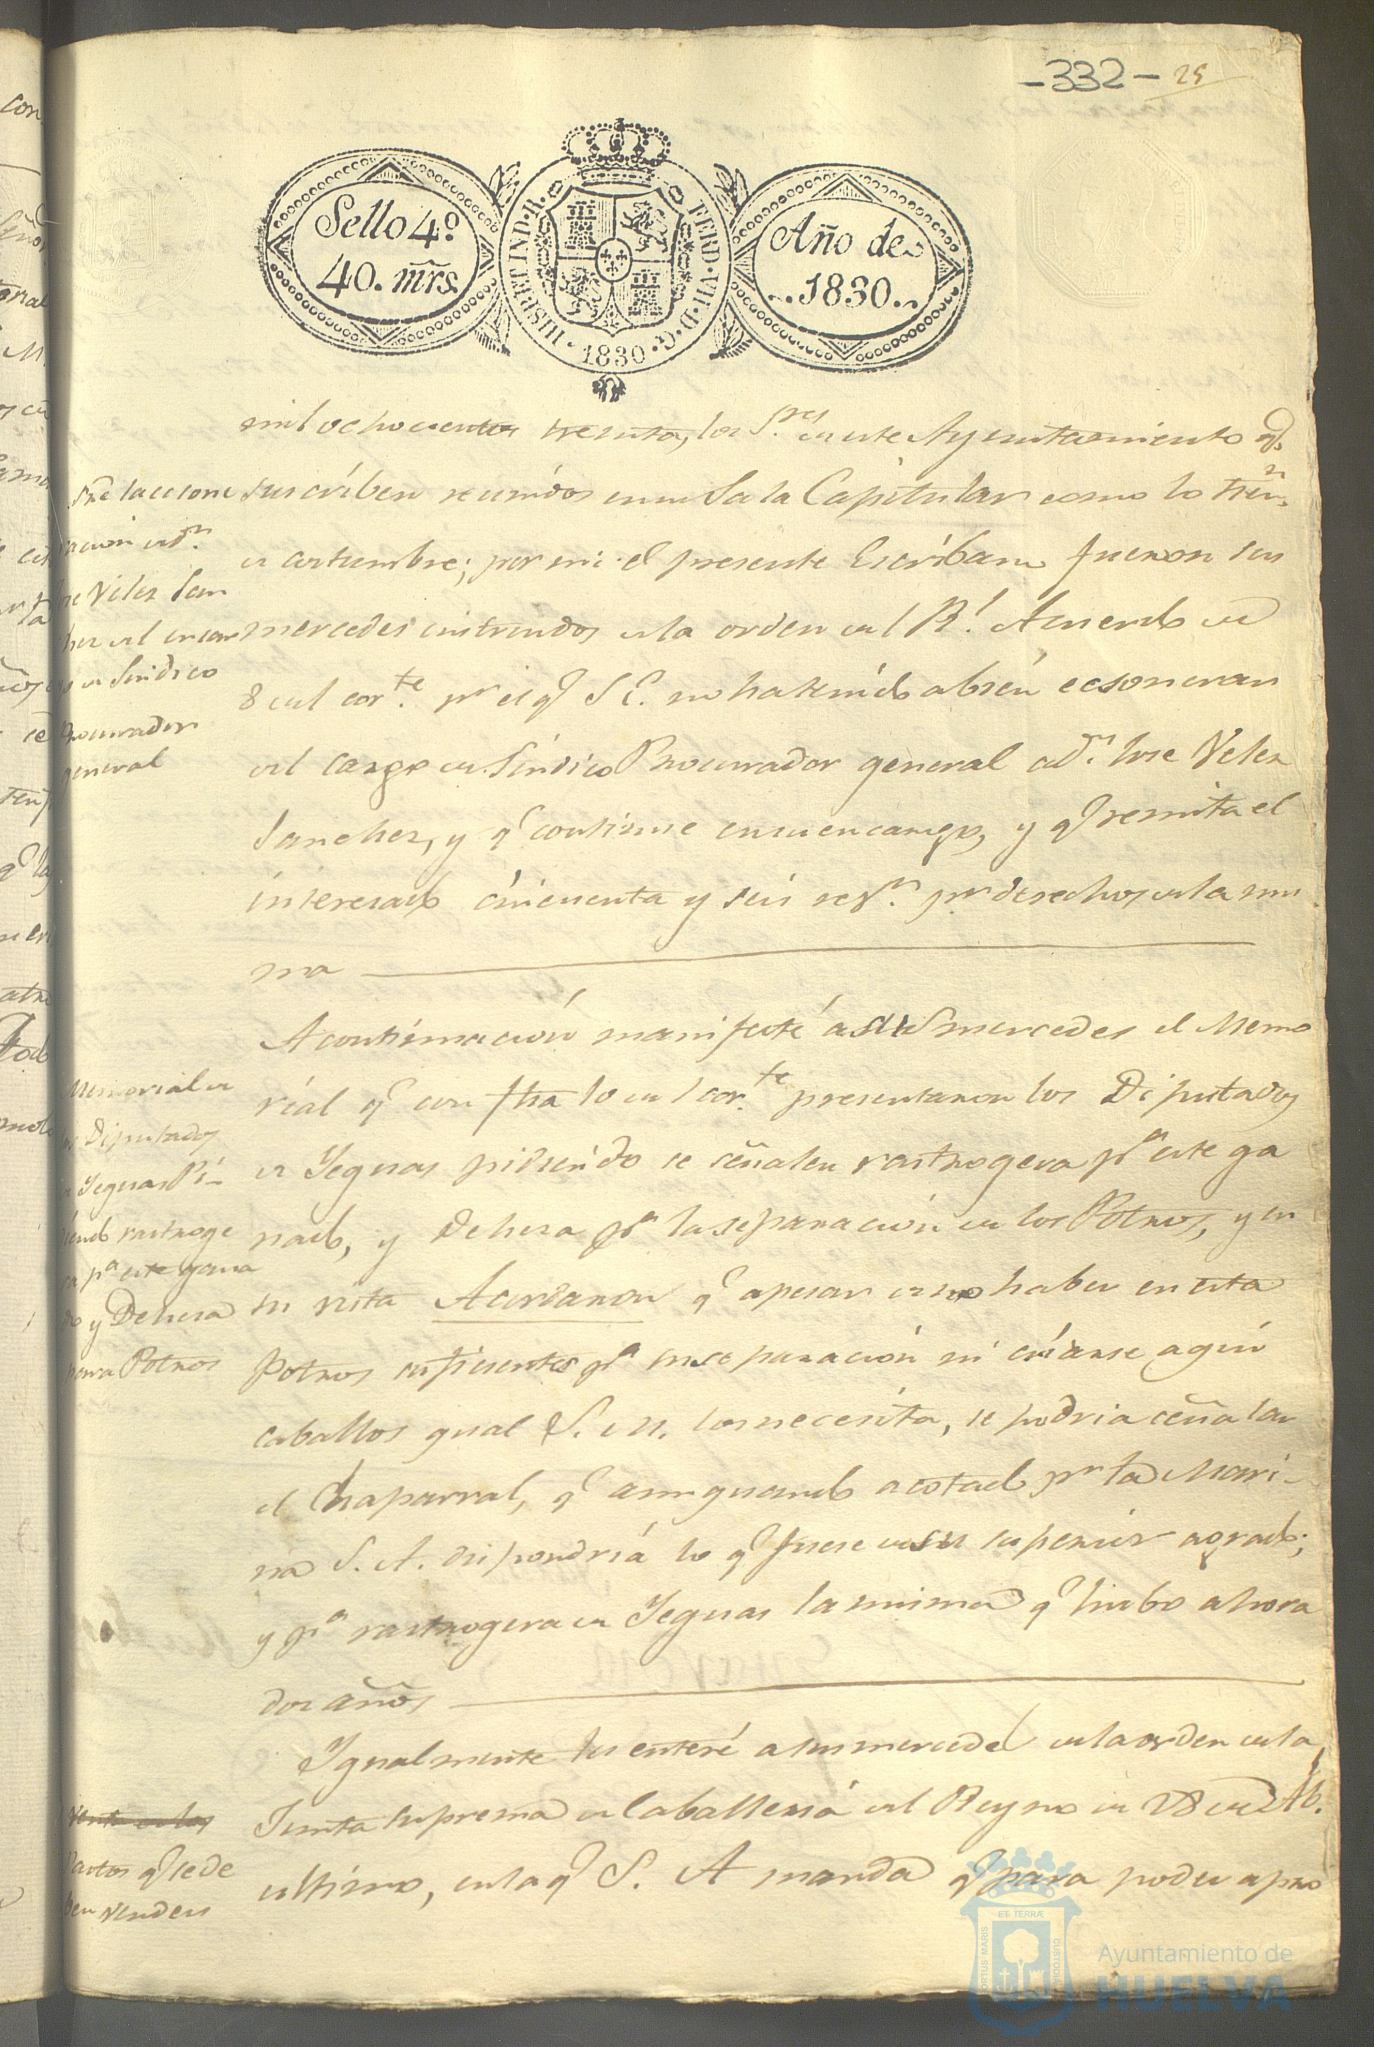 -332- 25
Sello 4º.
40. mrs.
HISP. ET IND. R. FERD. VII. D. G. 1830
Año de
1830.
mil ochocientos treinta, los S.res de este Ayuntamiento q.
suscriben reunidos en su Sala Capitular como lo tien.n
de costumbre; por mi el presente Escribano fueron sus
mercedes instruidos de la orden del Rl. Acuerdo de
8 del cor.te pr el q.e S.E. no ha tenido abien ecsoneran
del cargo de Sindico Procurador general a d.n Jose Velez
Sanchez, y q.e continue en su encargo, y q.e remita el
interesado cincuenta y seis r.s v.n p.r derechos de la mis
ma
A continuacion manifesté a sus mercedes el Memo
rial q.e con fha 10 del cor.te presentaron los Diputados
de Yeguas pidiendo se señalen rastrogera p.a este ga
nado, y Dehesa p.a la separacion de los Potros, y en
su vista Acordaron q.e apesar de no haber en esta
Potros suficientes p.a su separacion ni criarse aquí
caballos qual S. M. los necesita, se podria ceñalar
el Chaparral, q.e aun quando acotado p.r la Mari-
na S. A. dispondria lo q.e fuese de su superior agrado;
y p.a rastrogera de Yeguas la misma q.e hubo ahora
dos años
Ygualmente les enteré a sus mercedes de la orden de la
Junta Suprema de Caballeria del Reyno de 28 de Ab.
ultimo, en la q.e S. A manda q.e para poder apro
Sre la ecsone
racion de d.n
Jose Velez San
chez del encar
go de Sindico
Procurador
general
Memorial de
los Diputados
de Yeguas Pi-
diendo rastroge
ra p.a este gana
do y Dehesa
para Potros
Venta de los
Pastos q.e se de
ben vender
PORTUS MARIS ET TERRÆ CUSTODIA
Ayuntamiento de
HUELVA